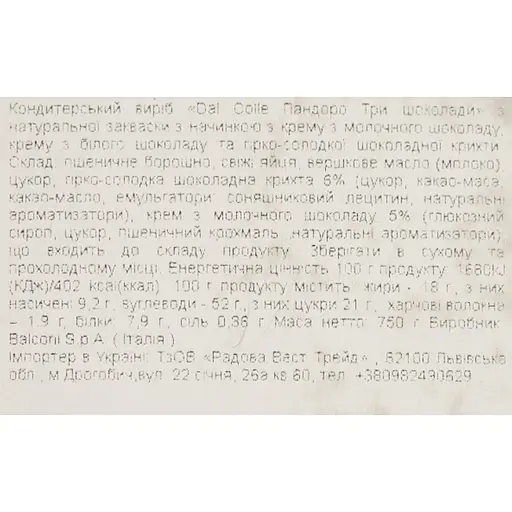 Кондитерський виріб «Dal Colle Пандоро Три шоколади» з
натуральної закваски з начинкою з крему з молочного шоколаду,
крему з білого шоколаду та гірко-солодкої шоколадної крихти.
Склад: пшеничне борошно, свіжі яйця, вершкове масло (молоко),
цукор, гірко-солодка шоколадна крихта 6% (цукор, какао-маса,
какао-масло, емульгатори: соняшниковий лецитин, натуральні
ароматизатори), крем з молочного шоколаду 5% (глюкозний
сироп, цукор, пшеничний крохмаль ,натуральні ароматизатори),
що входить до складу продукту. Зберігати в сухому та
прохолодному місці. Енергетична цінність 100 г продукту: 1680kJ
(КДж)/402 kcal(ккал). 100 г продукту містить: жири - 18 г, з них
насичені 9,2 г, вуглеводи - 52 г., з них цукри 21 г, харчові волокна
– 1,9 г, білки: 7,9 г, сіль 0,36 г. Маса нетто: 750 г Виробник:
Balconi S.p.A. ( Італія )
Імпортер в Україні: ТзОВ «Радова Вест Трейд» , 82100 Львівська
обл., м.Дрогобич,вул. 22 січня, 26а кв.60, тел. +380982490629